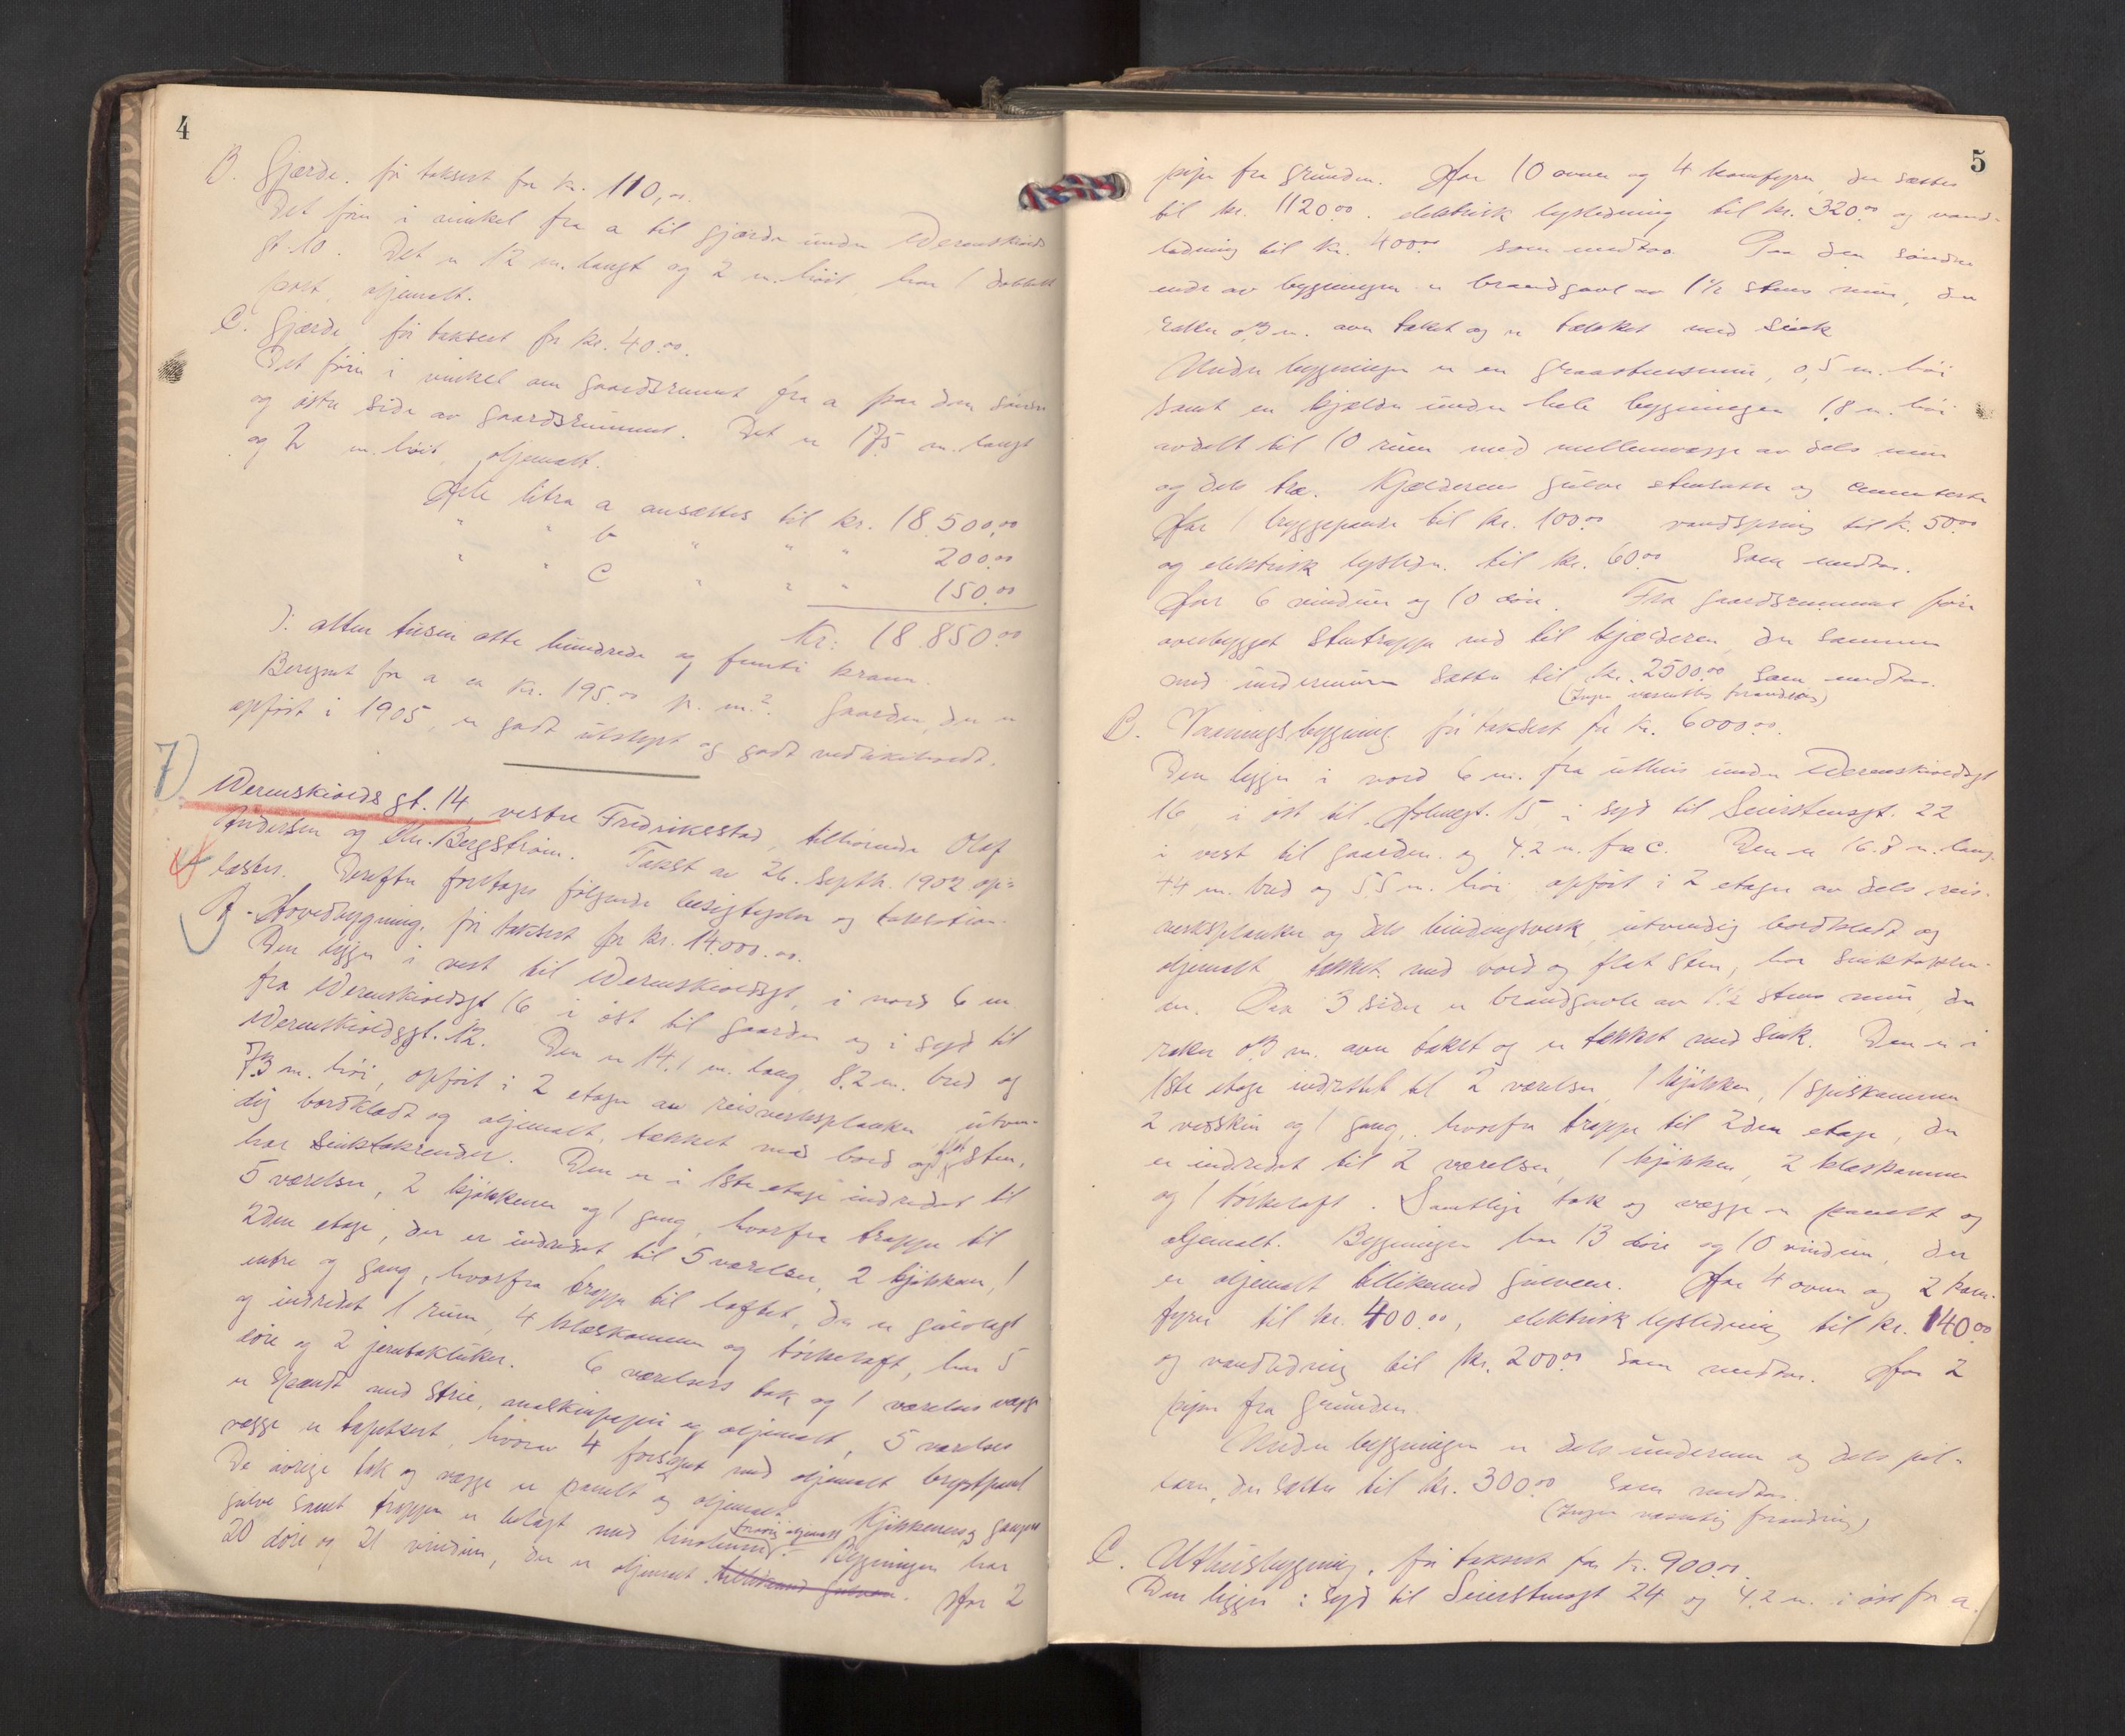 4
B. Gjærde. før taksert for kr. 110,00.
Det fører i vinkel fra a til gjærde under Werenskiolds
gt. 10. Det er 12 m. langt og 2 m. höit, har 1 dobbelt
port, oljemalt.
C. Gjærde før taksert for kr. 40.00.
Det fører i vinkel om gaardsrummet fra a paa den söndre
og östre side av gaardsrummet. Det er 17,5 m. langt
og 2 m. höit, oljemalt.
Hele litra a ansættes til kr. 18.500,00
" " b " " " 200.00
" " C " " " 150.00
Kr: 18.850.00
): atten tusen otte hundrede og femti kroner.
Beregnet for a er kr. 195.00 pr. m.². Gaarden, der er
opfört i 1905, er godt utstyrt og godt vedlikeholdt.
7) Werenskiolds gt. 14, vestre Fredriksstad, tilhörende Olaf
Andersen og Chr. Bergström. Takst av 26. Septbr. 1902 op-
læstes. Derefter foretages fölgende besigtigelse og taksation.
A. Hovedbygning, før taksert for kr. 14000.00.
Den ligger i vest til Werenskioldsgt, i nord 6 m
fra Werenskioldsgt 16 i öst til gaarden og i syd til
Werenskioldsgt. 12. Den er 14.1 m. lang 8.2 m. bred og
7,3 m. höi, opfört i 2 etager av reisverksplanker utven-
dig bordklædt og oljemalt, tækket med bord og flat sten,
har sinktakrender. Den er i 1ste etage indredet til
5 værelser, 2 kjökkener og 1 gang, hvorfra trappe til
2den etage, der er indredet til 5 værelser, 2 kjökken, 1
entre og gang, hvorfra trappe til loftet, der er gulvlagt
og indredet 1 rum, 4 klæskammer og törkeloft, har 5
döre og 2 jerntakluker. 6 værelsers tak og 1 værelses vægge
er spændt med strie, maskinpapir og oljemalt, 5 værelses
vægge er tapetsert, hvorav 4 forsynt med oljemalt brystpanel
De övrige tak og vægge er panelt og oljemalt. Kjökkenens og gangens
gulve samt trappen er belagt med linoleum, övrig oljemalt. Bygningen har
20 döre og 21 vinduer, der er oljemalt tillikemed gulvene. Har 2
5
piper fra grunden. Har 10 ovner og 4 komfyrer, der sættes
til kr. 1120.00. elektrisk lysledning til kr. 320.00 og vand-
ledning til kr. 400.00 som medtas. Paa den söndre
ende av bygningen er brandgavl av 1½ stens mur, der
rækker 0,3 m. over taket og er tækket med sink
Under bygningen er en graastensmur, 0,5 m. höi
samt en kjælder under hele bygningen 1,8 m. höi
avdelt til 10 rum med mellemvægge av dels mur
og dels træ. Kjælderens gulve stensatte og cementerte
Har 1 bryggepande til kr. 100.00 vandspring til kr. 50.00
og elektrisk lysledn. til kr. 60.00 som medtas.
Har 6 vinduer og 10 döre. Fra gaardsrummet förer
overbygget stentrappe ned til kjælderen, der sammen
med undermuren sættes til kr. 2500.00 som medtas.
(Ingen væsentlig forandring)
B. Vaaningsbygning før taksert for kr. 6000.00.
Den ligger i nord 6 m. fra uthus under Werenskioldsgt
16 i öst til Holmegt. 15 i syd til Seierstensgt. 22
i vest til gaarden og 4.2 m. fra C. Den er 16.8 m. lang
4.4 m. bred og 5.5 m. höi opfört i 2 etager av dels reis-
verksplanker og dels bindingsverk utvendig bordklædt og
oljemalt tækket med bord og flat sten, har sinktakren-
der. Paa 3 sider er brandgavle av 1½ stens mur, der
rækker 0,3 m. over taket og er tækket med sink. Den er i
1ste etage indredet til 2 værelser, 1 kjökken, 1 spiskammer
2 vedskur og 1 gang, hvorfra trappe til 2den etage, der
er indredet til 2 værelser, 1 kjökken, 2 klæskammer
og 1 törkeloft. Samtlige tak og vægge er panelt og
oljemalt. Bygningen har 13 döre og 10 vinduer, der
er oljemalt tillikemed gulvene. Har 4 ovner og 2 kom-
fyrer til kr. 400.00, elektrisk lysledning til kr. 140.00
og vandledning til kr. 200.00 som medtas. Har 2
piper fra grunden.
Under bygningen er dels undermur og dels pil-
larer, der sættes til kr. 300.00 som medtas.
(Ingen væsentlig forandring)
C. Uthusbygning, før taksert for kr. 900.00.
Den ligger i syd til Seierstensgt 24 og 4,2 m. i öst fra a.